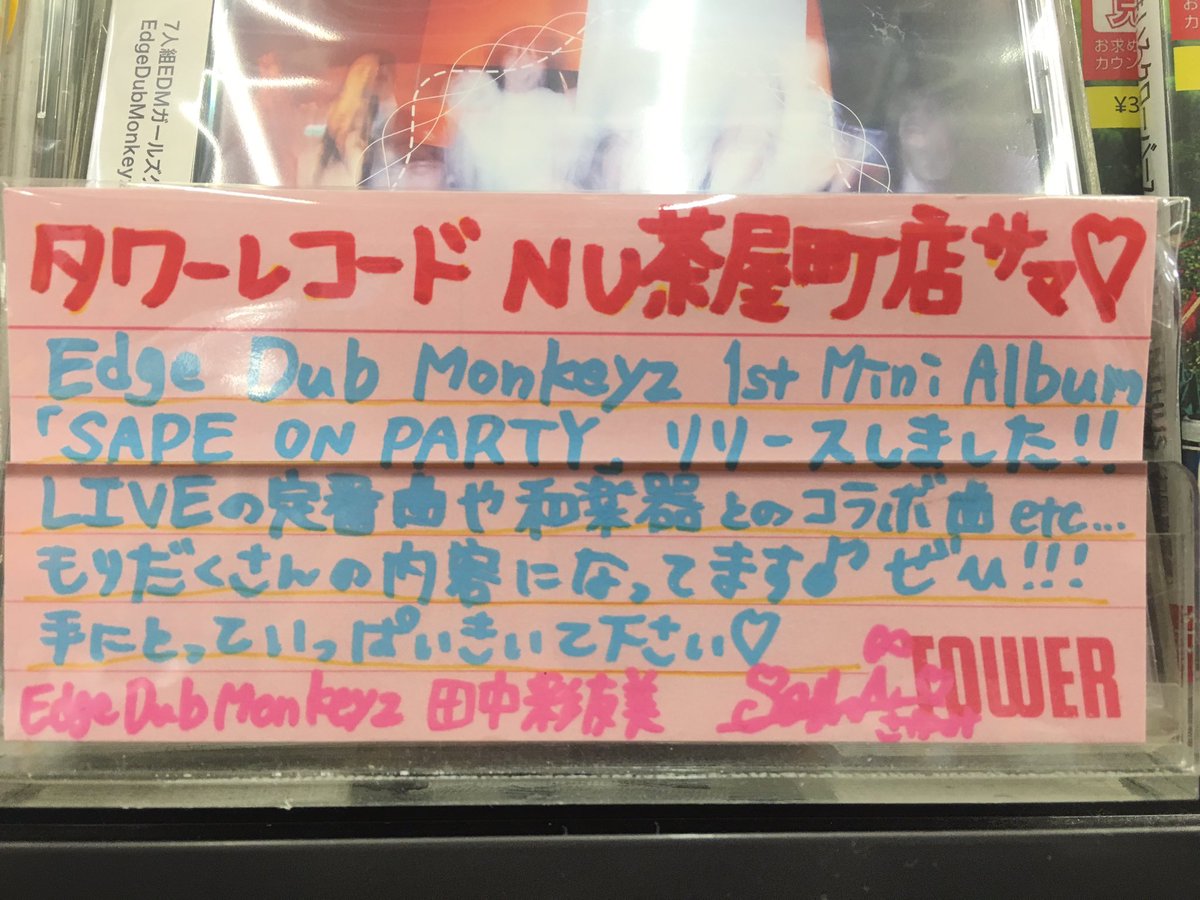 7人組EDMガールズ
EdgeDubMonkey
お求め
カウン
¥3
タワーレコード NU茶屋町店サマ♡
Edge Dub Monkeyz 1st Mini Album
「SAPE ON PARTY」リリースしました!!
LIVEの定番曲や和楽器とのコラボ曲etc...
もりだくさんの内容になってます♪ぜひ!!!
手にとっていっぱいきいて下さい♡
Edge Dub Monkeyz 田中彩友美
TOWER